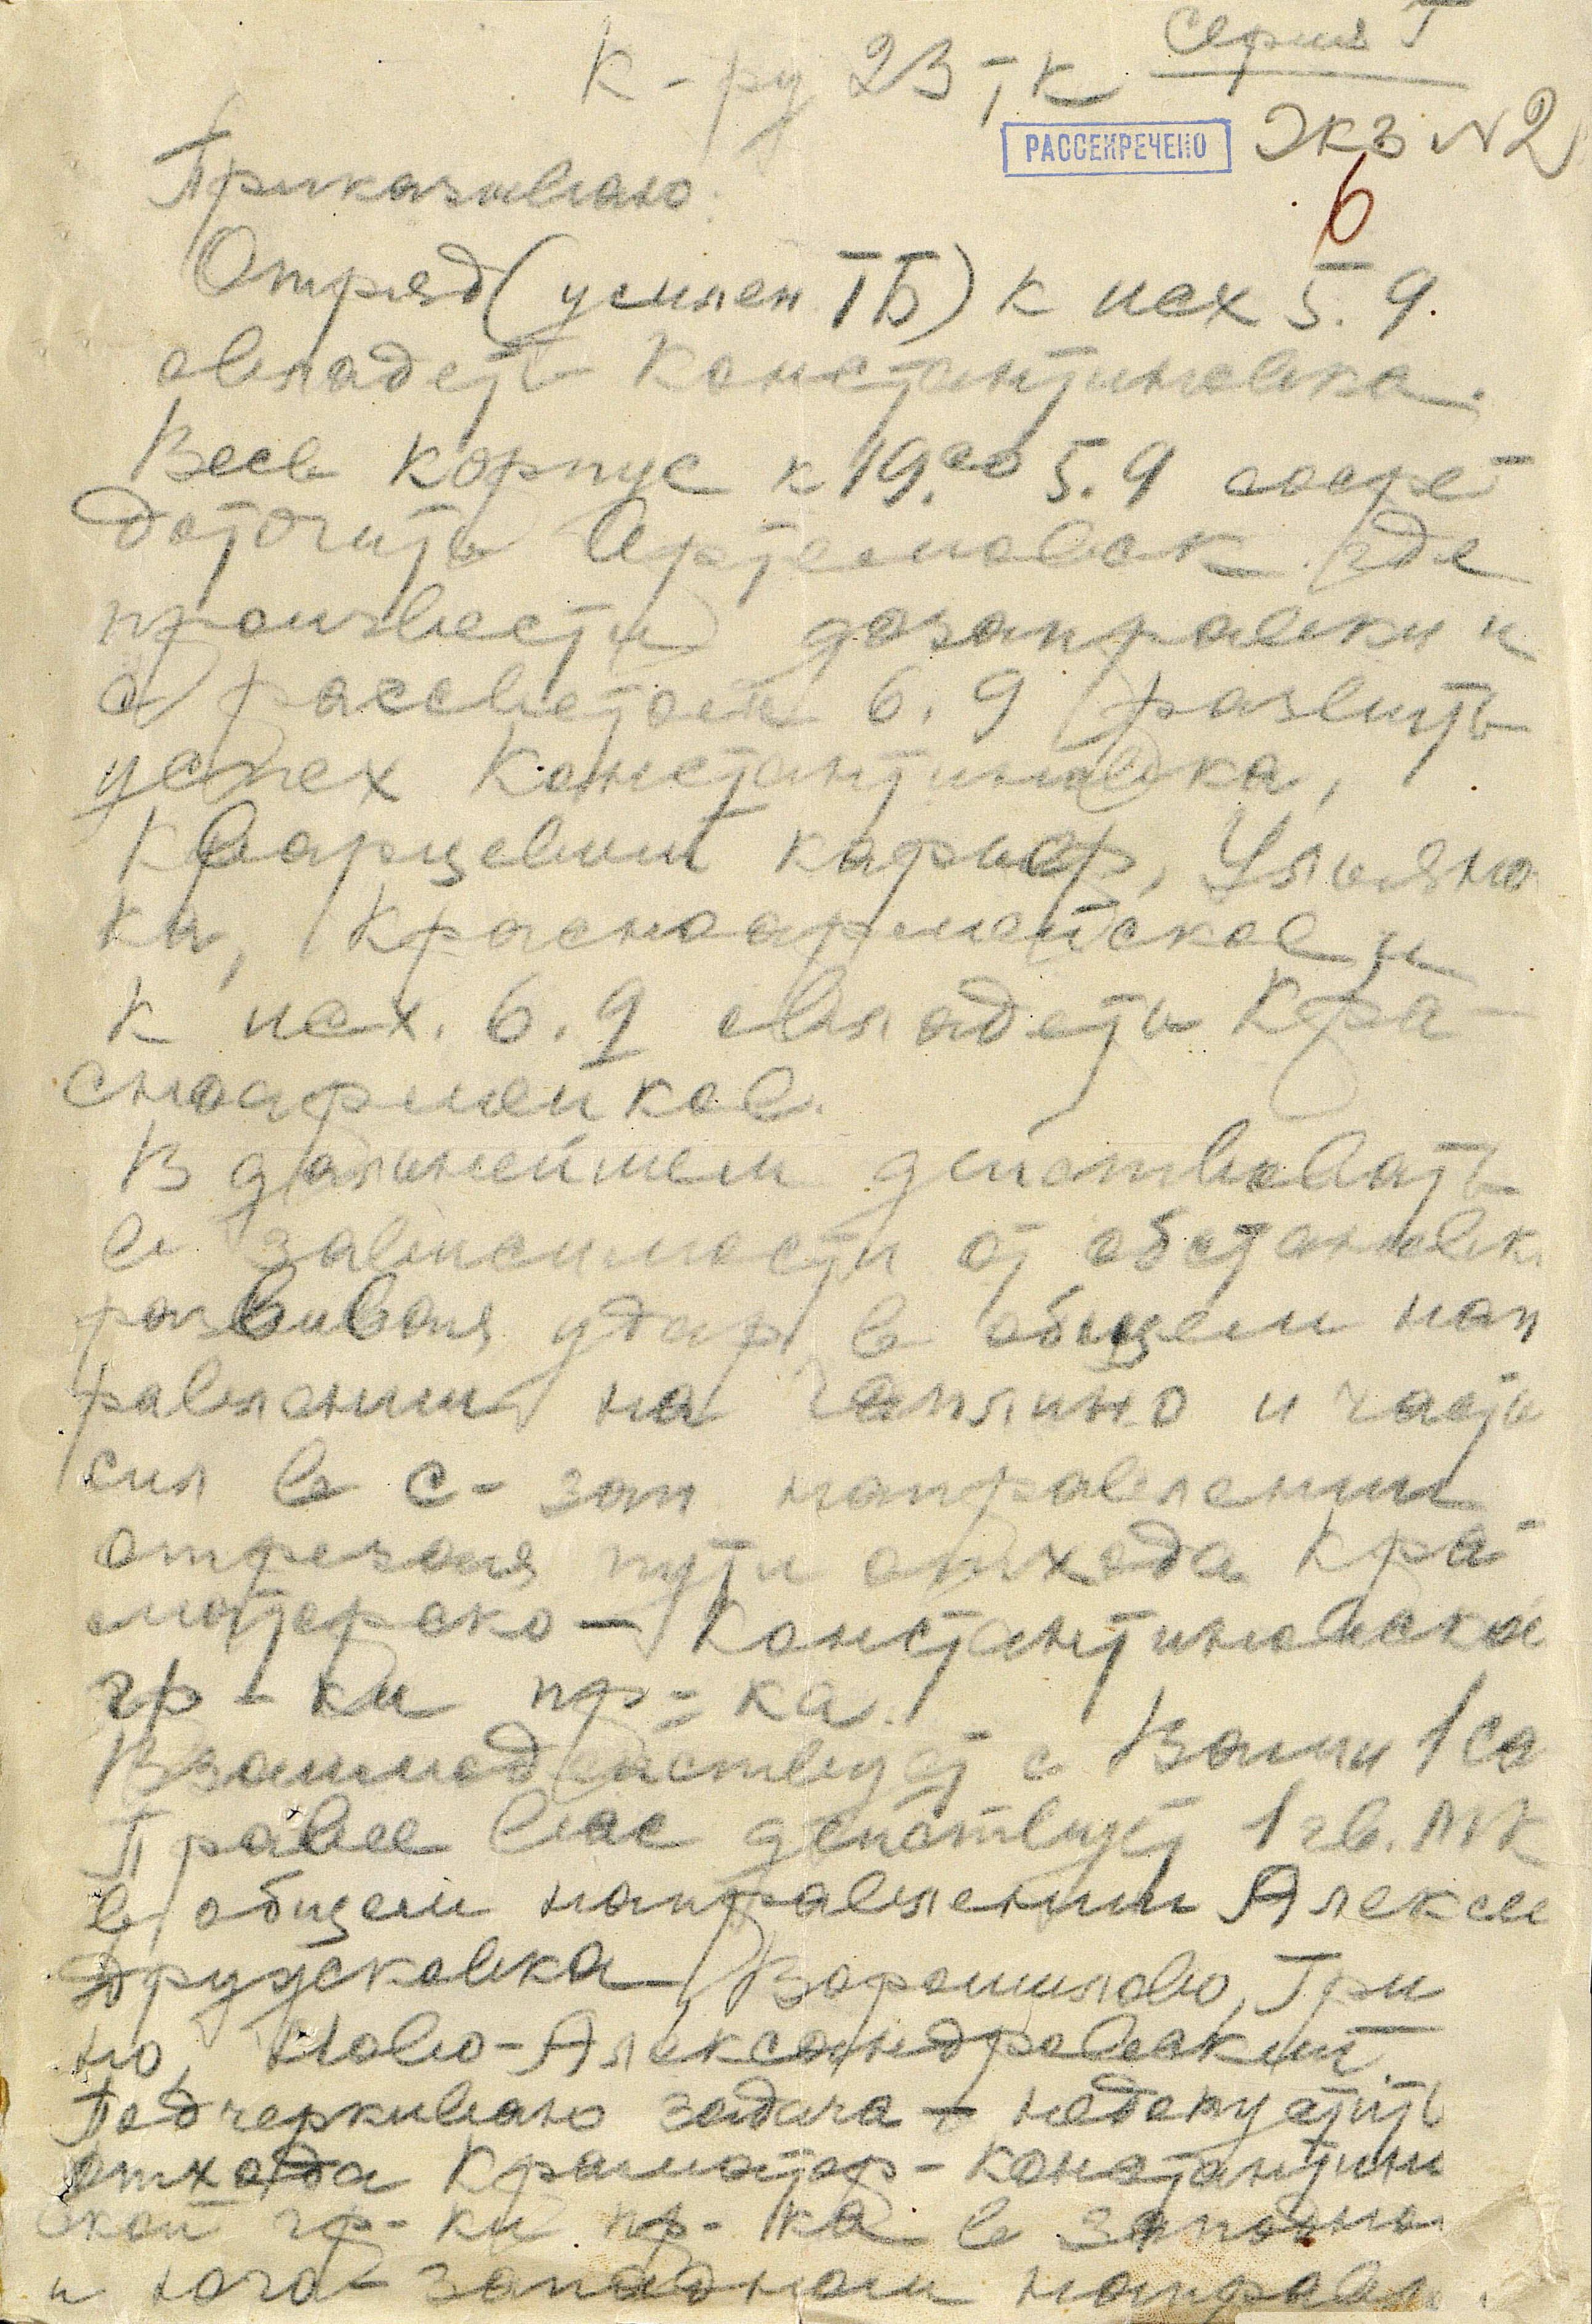 Серия Г
К-ру 23 ТК
РАССЕКРЕЧЕНО
Экз N 2
6
Приказываю:
Отряд (усилен ТБ) к исх 5.9.
овладеть Константиновка.
Весь корпус к 19.00 5.9 сосре-
доточить Артемовск где
произвести дозаправки и
с рассветом 6.9 развить
успех Константиновка,
Кварцевый карьер, Ульяно
ка, Красноармейское и
к исх. 6.9 овладеть Кра-
сноармейкое.
В дальнейшем действовать
в зависимости от обстановк
развивая удар в общем нап
равлении на Чаплино и часть
сил в с-зап направлении
отрезая пути отхода Кра-
маторско-Константиновской
гр-ки пр-ка.
Взаимодействует с Вами 1 са
Правее вас действует 1 гв. МК
в общем направлении Алексее
Дружковка, Ворошилово, Гри
но, Ново-Александровский.
Подчеркиваю задача - недопустить
отхода Краматор-Константин
ской гр-ки пр-ка в западны
и юго-западном направл.